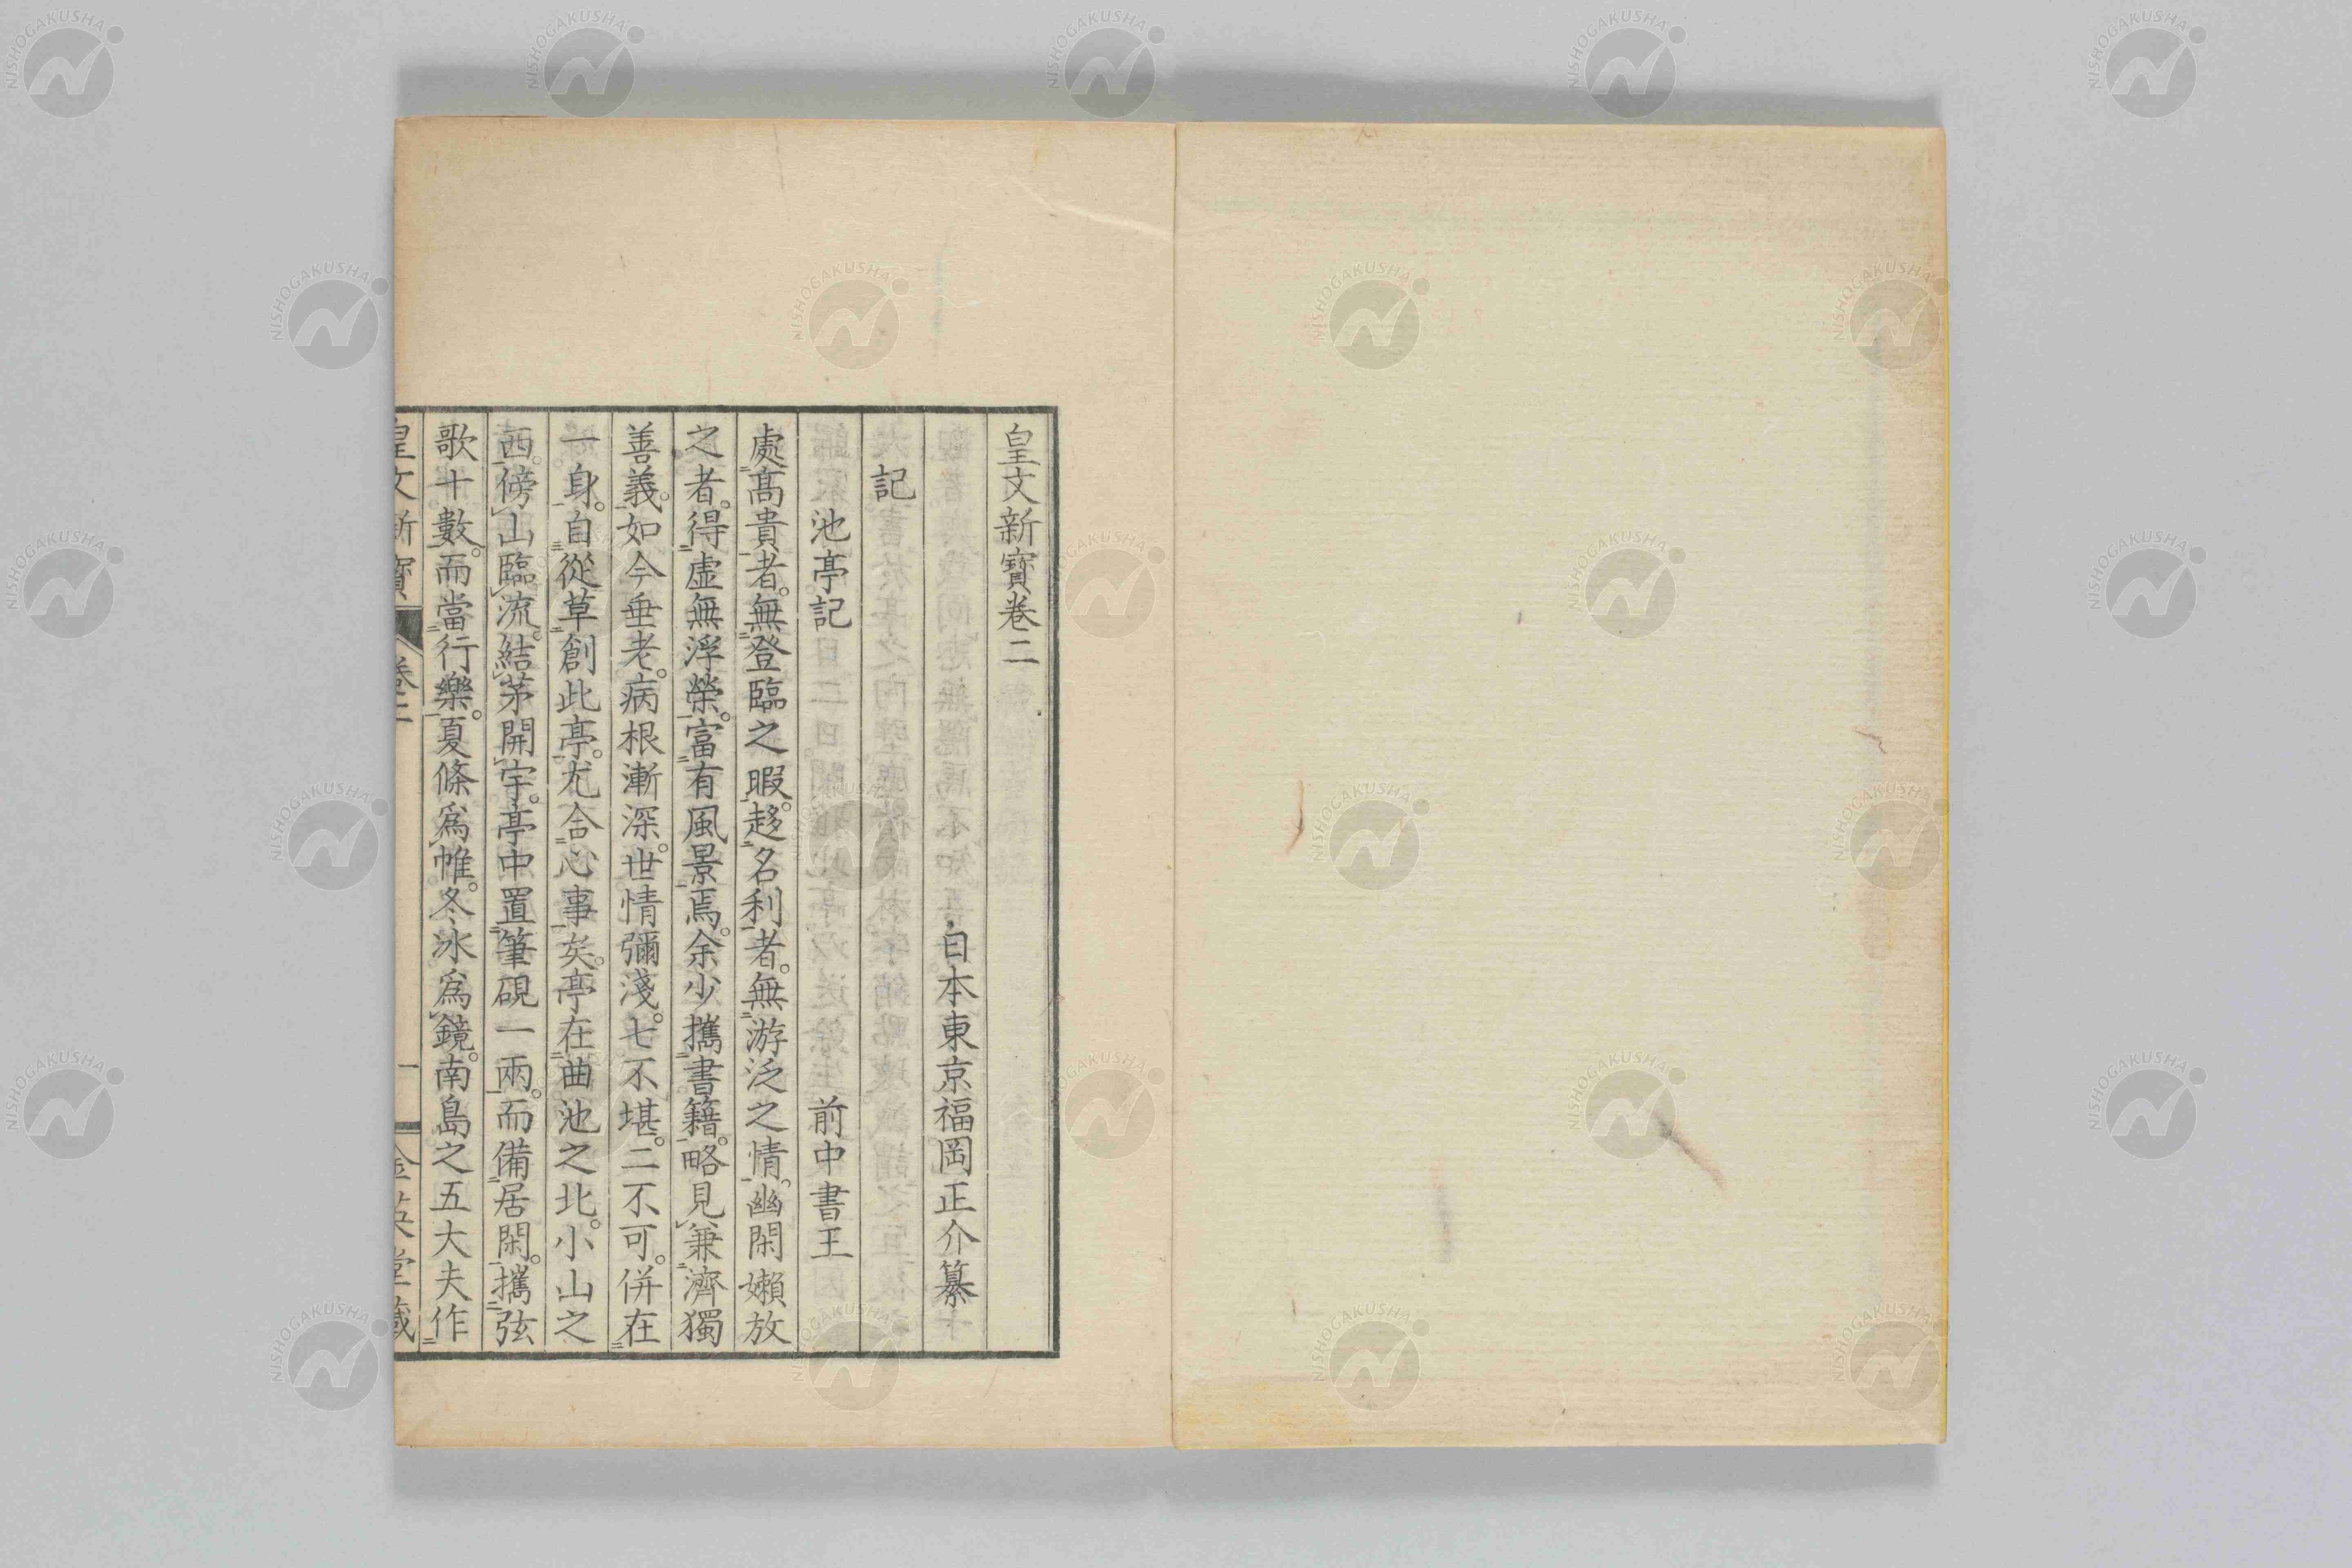 皇文新寶卷二
日本東京福岡正介纂
記
池亭記 前中書王
處高貴者。無登臨之暇。趍名利者。無游泛之情。幽閑嬾放
之者。得虛無浮榮。富有風景焉。余少攜書籍。略見兼濟獨
善義。如今垂老。病根漸深。世情彌淺。七不堪。二不可。併在
一身。自從草創此亭。尤合心事矣。亭在曲池之北。小山之
西。傍山臨流。結茅開宇。亭中置筆硯一兩。而備居閑。攜弦
歌十數。而當行樂。夏條爲帷。冬冰爲鏡。南島之五大夫作
皇文新寶 卷二 一 金英堂藏